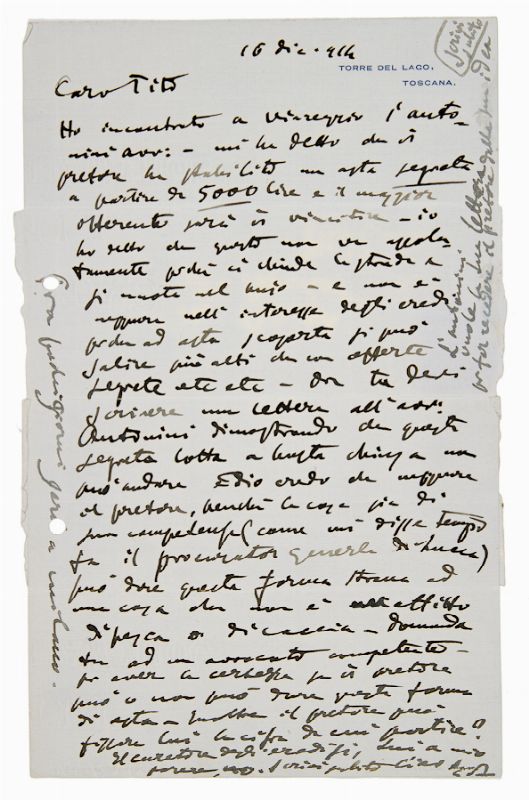 16 dic. 914
TORRE DEL LAGO.
TOSCANA.
scrivi
subito
Caro Tito
Ho incontrato a Viareggio l'Anto-
nini avv: – mi ha detto che il
pretore ha stabilito un asta segreta
a partire da 5000 lire e il maggior
offerente sarà il vincitore – io
ho detto che questo non va assolu-
tamente perchè ci chiude la strada e
si nuota nel buio – e non è
neppure nell' interesse degli eredi
perchè ad asta scoperta si può
salire più alti che con offerte
segrete etc etc – Ora tu devi
scrivere una lettera all' avv:
Antonini dimostrando che questa
segreta lotta a busta chiusa non
può andare. Ed io credo che neppure
il pretore, benchè la cosa sia di
sua competenza (come mi disse tempo
fa il procurator generale di Lucca)
può dare questa forma strana ad
una cosa che non è affitto
di pesca o di caccia – domanda
tu ad un avvocato competente –
per aver la certezza se il pretore
può o non può dare questa forma
di asta – Inoltre il pretore può
fissare lui la cifra da cui partire?
El curatore degli eredi si, lui a mio
parere, no. Scrivi subito Ciao
Fra pochi giorni sarò a Milano.
L'Antonini
vuole la tua lettera
per far recedere il pretore dalla sua idea